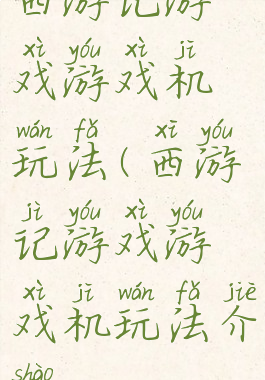 西游记游
xì yóu xì jī
戏游戏机
wán fǎ xī yóu
玩法(西游
jì yóu xì yóu
记游戏游
xì jī wán fǎ jiè
戏机玩法介
shào